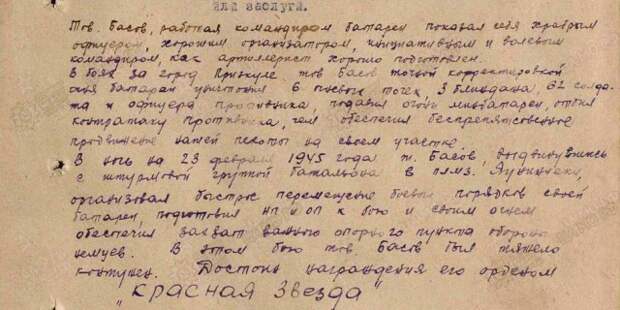 или заслуги.
Тов. Басов, работая командиром батареи показал себя храбрым
офицером, хорошим организатором, инициативным и волевым
командиром, как артиллерист хорошо подготовлен.
В боях за город тов Басов точной корректировкой
огня батареи уничтожил 6 пулевых точек, 3 блиндажа, 62 солда-
та и офицера противника, подавил огонь минбатареи, отбил
контратаку противника, чем обеспечил беспрепятственное
продвижение нашей пехоты на своем участке.
В ночь на 23 февраля 1945 года т. Басов, выдвинувшись
с штурмовой группой батальона в
организовал быстрое перемещение боевых порядков своей
батареи, подготовил НП и ОП к бою и своим огнем
обеспечил захват важного опорного пункта обороны
немцев. В этом бою тов. Басов был тяжело
контужен. Достоин награждения его орденом
"Красная Звезда"